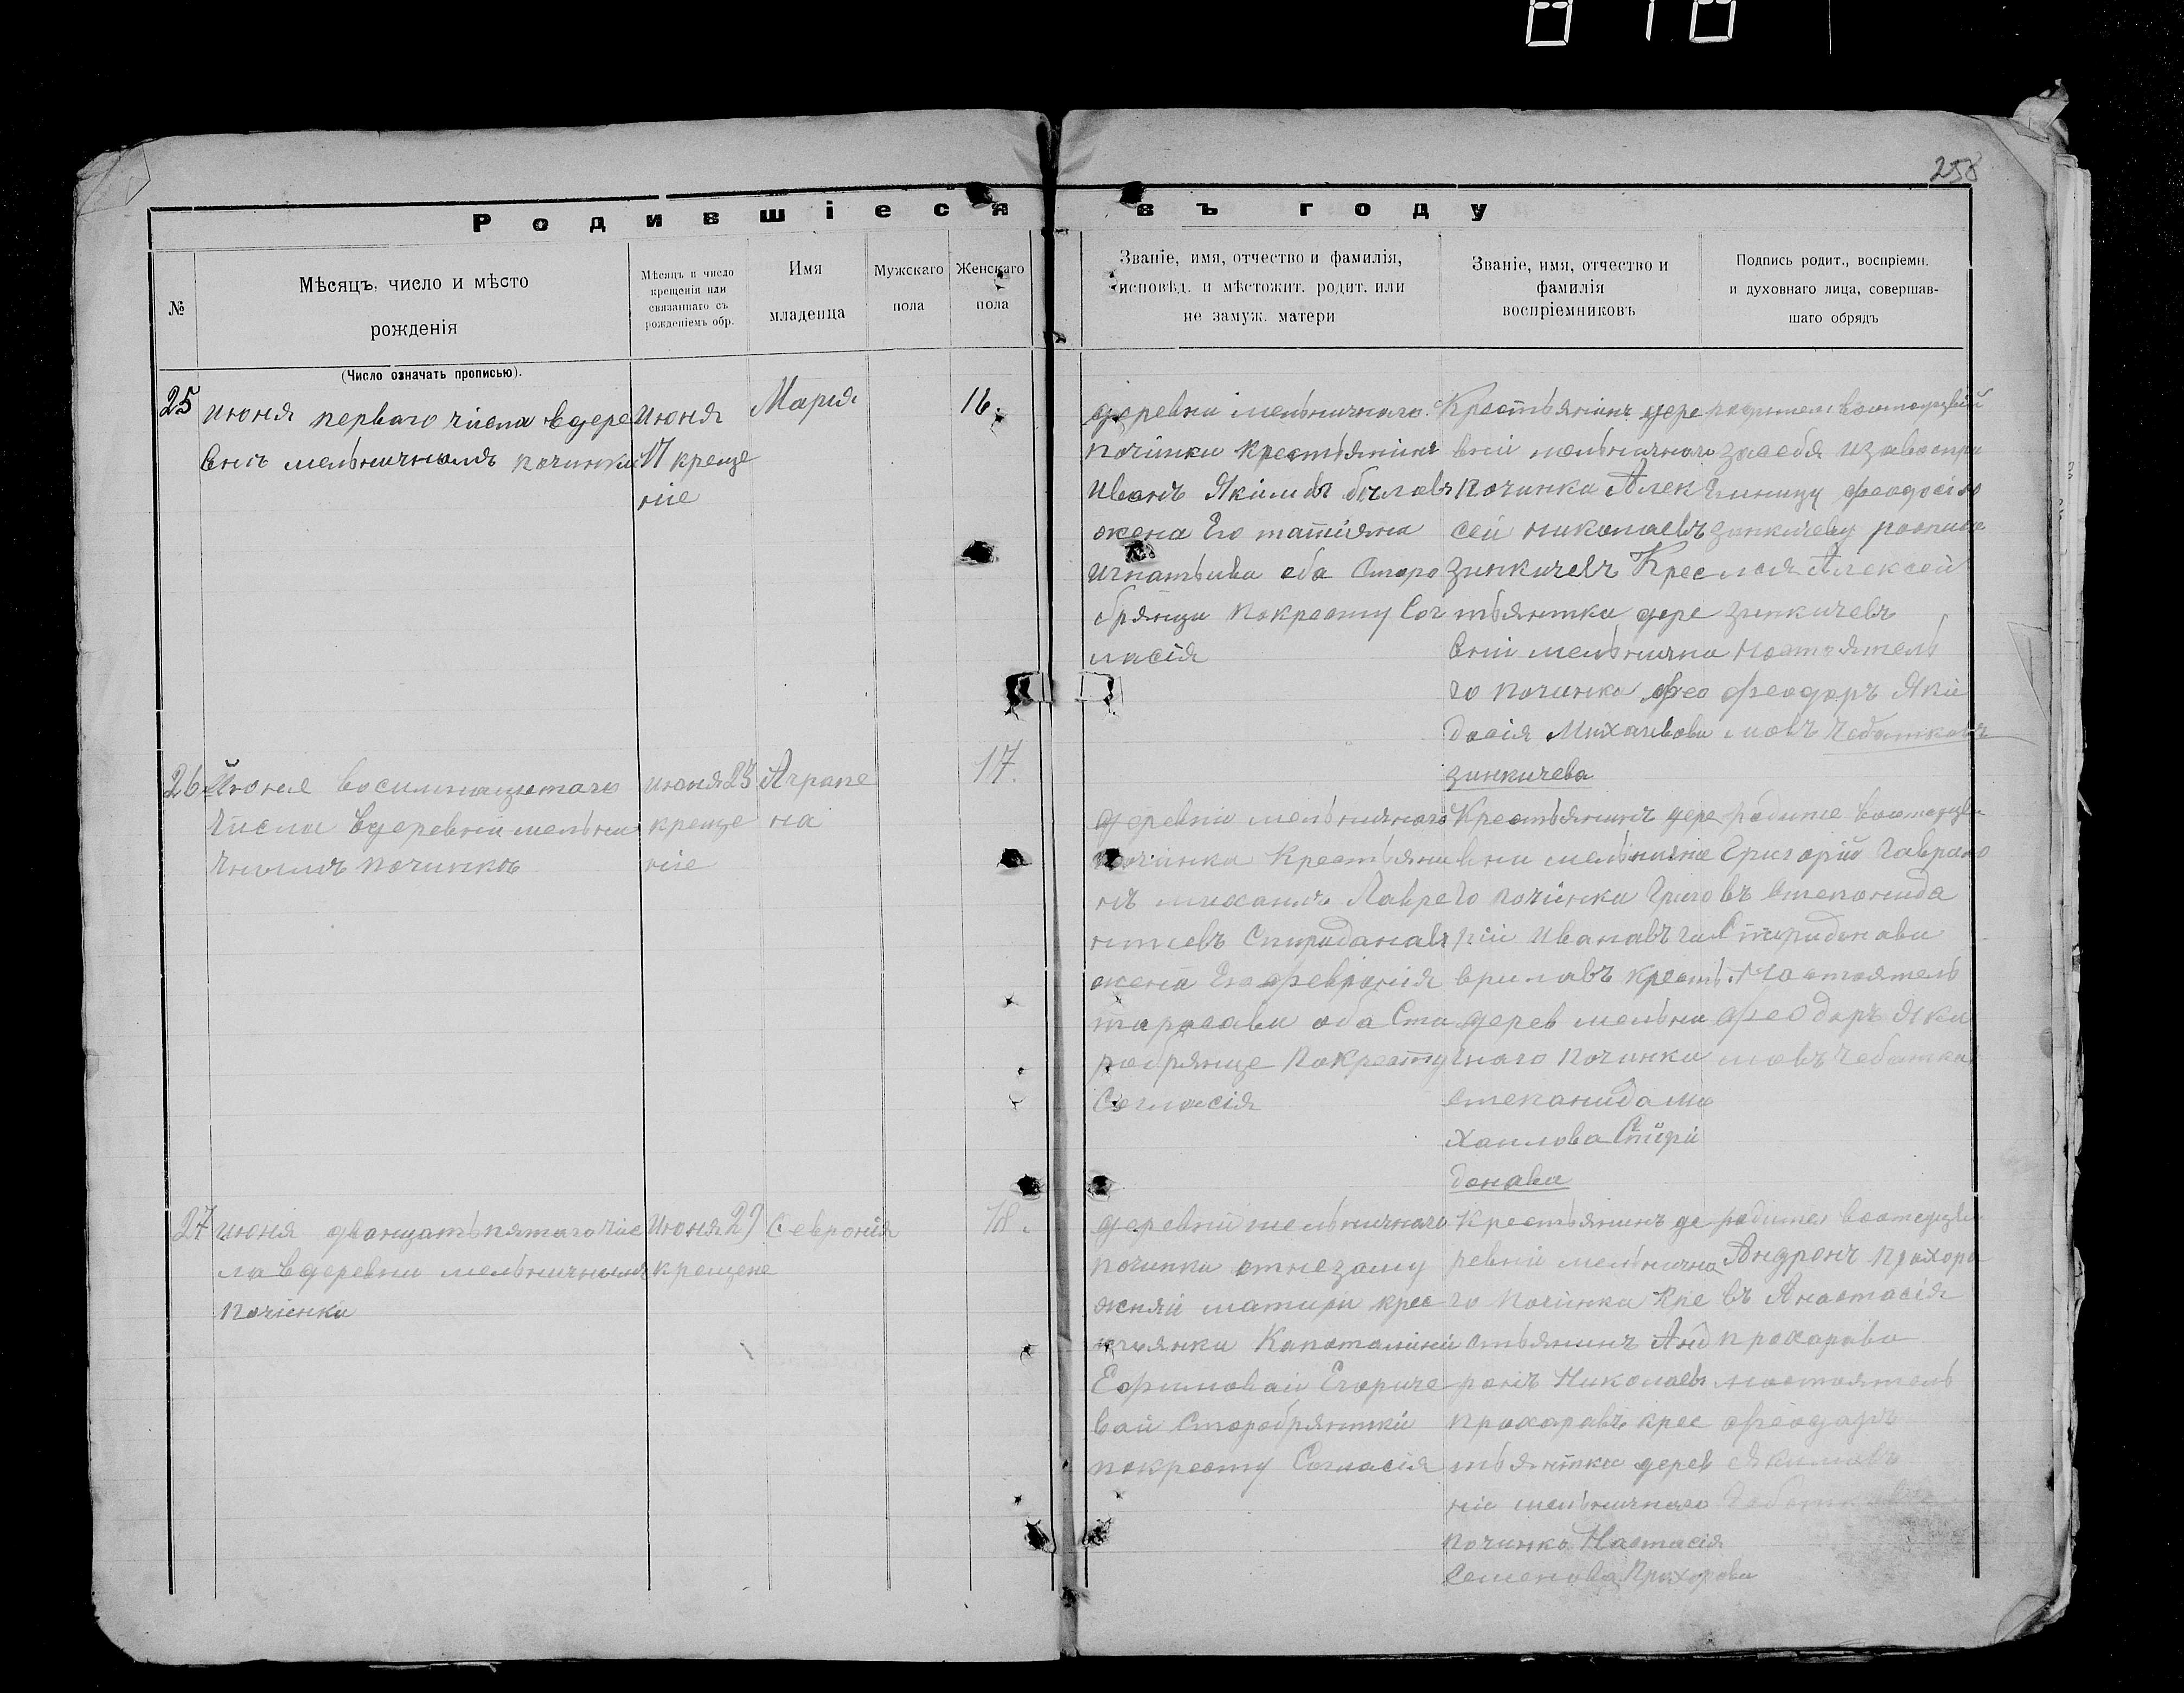 258
Родившіеся въ году
№
Мѣсяцъ, число и мѣсто
рожденія
(Число означать прописью).
Мѣсяцъ и число
крещенія или
связаннаго съ
рожденіемъ обр.
Имя
младенца
Мужскаго
пола
Женскаго
пола
Званіе, имя, отчество и фамилія,
исповѣд. и мѣстожит. родит. или
не замуж. матери
Званіе, имя, отчество и
фамилія
воспріемниковъ
Подпись родит., воспріемн.
и духовнаго лица, совершав-
шаго обрядъ
25
июня перваго числа вдере
внѣ мельничномъ починки
Июня
17 креще
ніе
Мария
16.
деревни мельничнаго
починки крестьянинъ
Иванъ Якимовъ
жена Его татіяна
Игнатьива оба Старо
брянци Покресту Сог
ласія
Крестьянинъ дере
вни мельничнаго
Починка Алек
сей николаевъ
зинкичевъ Крес
тьянтка дере
вни мельнична
го починка Фео
досія Михаивова
зинкичева
засебя изавоспри
Емницу феодосію
зинкичеву росписа
лся Алексей
зинкичевъ
Настоятель
Феодоръ Яки
мовъ Чебатковъ
26
Июня восимнацетаго
числа вдеревни мельни
чномъ починкѣ
июня 23
креще
ніе
Аграпе
на
17.
деревни мельничнаго
починка Крестьяни
нъ михаилъ Лавре
нтиевъ Спириданавъ
жена Его февронія
тарасава оба Ста
робрянце Покресту
Согласія
Крестьянинъ дере
вни мельнична
го починка Григо
рій Иванавъ га
вриловъ крестья
дерев мельни
чнаго починка
степанида ми
хаилова Спири
донава
Григорій Гаврило
въ Степонида
Спиридонава
Настоятель
Феодоръ Яки
мовъ Чебатка
27
июня дванцать пятаго чис
ла вдеревни мельничномъ
починки
Июня 29
крещене
Севронія
18.
деревни мельничнаго
починки отнезаму
жняй матири крес
тьянки Капоталиніи
Ефимовай Егориче
вай Старобрянтки
покресту Согласія
Крестьянинъ де
ревни мельнична
го Починка Кре
стьянинъ Анд
ронъ Николаевъ
Прохаравъ крес
тьянтка дерев
ни мельничнаго
починка Настасія
Семенова Прохорова
Андронъ Прохоро
въ Анастасія
Прохарава
Настоятель
Феодоръ
Якимовъ